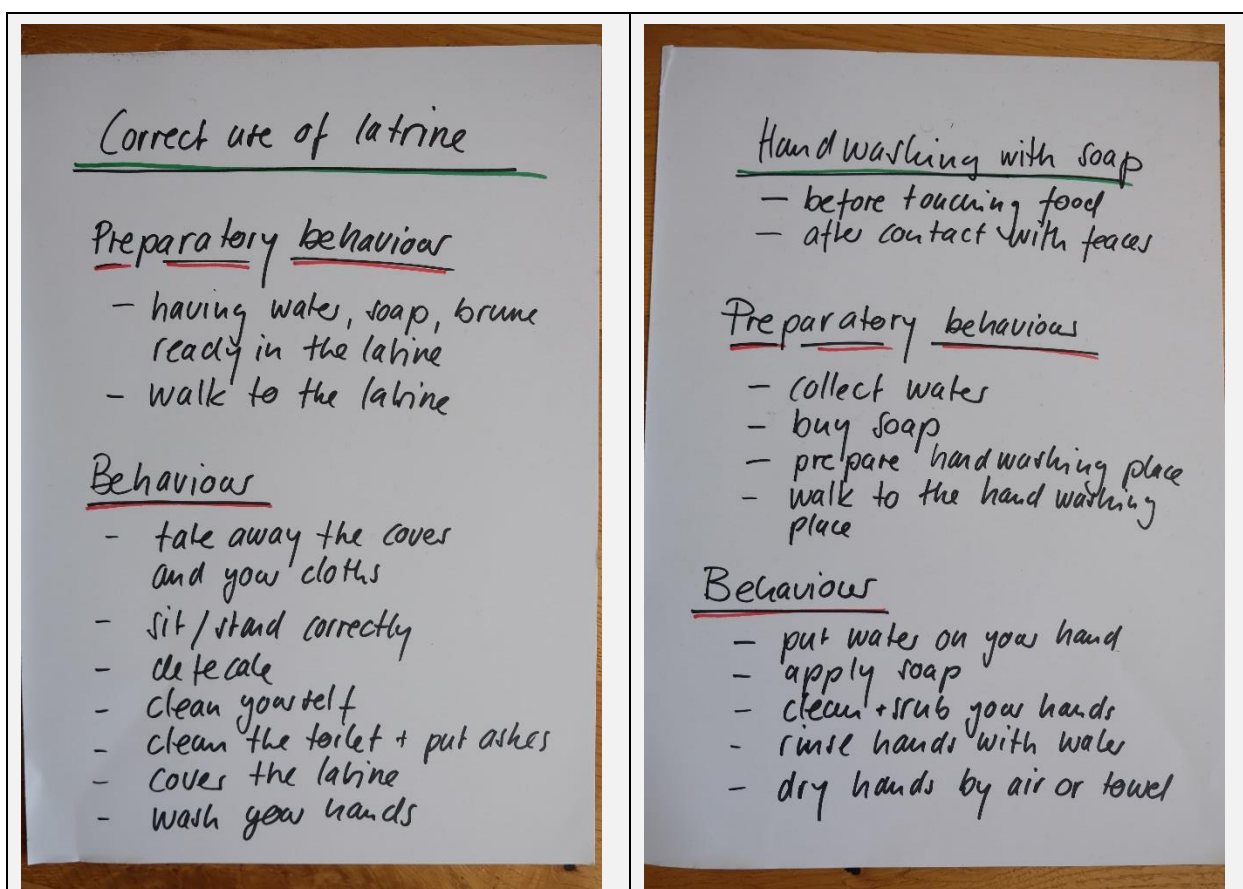 Correct use of latrine
Preparatory behaviour
- having water, soap, brume
ready in the latine
- walk to the latrine
Behaviour
- take away the cover
and your cloths
- sit/stand correctly
- defecate
- clean yourself
- clean the toilet + put ashes
- cover the latrine
- wash your hands
Handwashing with soap
- before touching food
- after contact with feaces
Preparatory behaviour
- collect water
- buy soap
- prepare handwashing place
- walk to the hand washing
place
Behaviour
- put water on your hand
- apply soap
- clean + scrub your hands
- rinse hands with water
- dry hands by air or towel